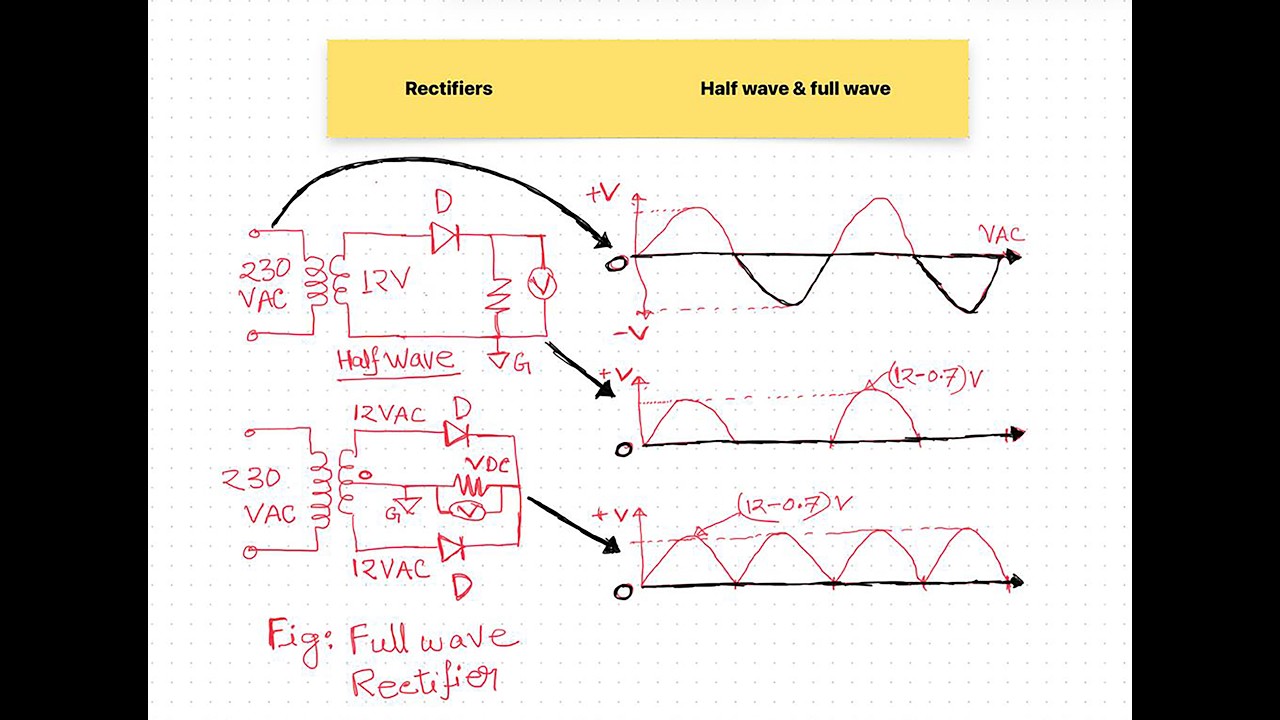 Rectifiers
Half wave & full wave
D
230
VAC
12V
V
G
Half wave
+V
O
-V
VAC
+V
(12-0.7)V
O
12VAC
D
230
VAC
VDC
G
V
12VAC
D
+V
(12-0.7)V
O
Fig: Full wave
Rectifier